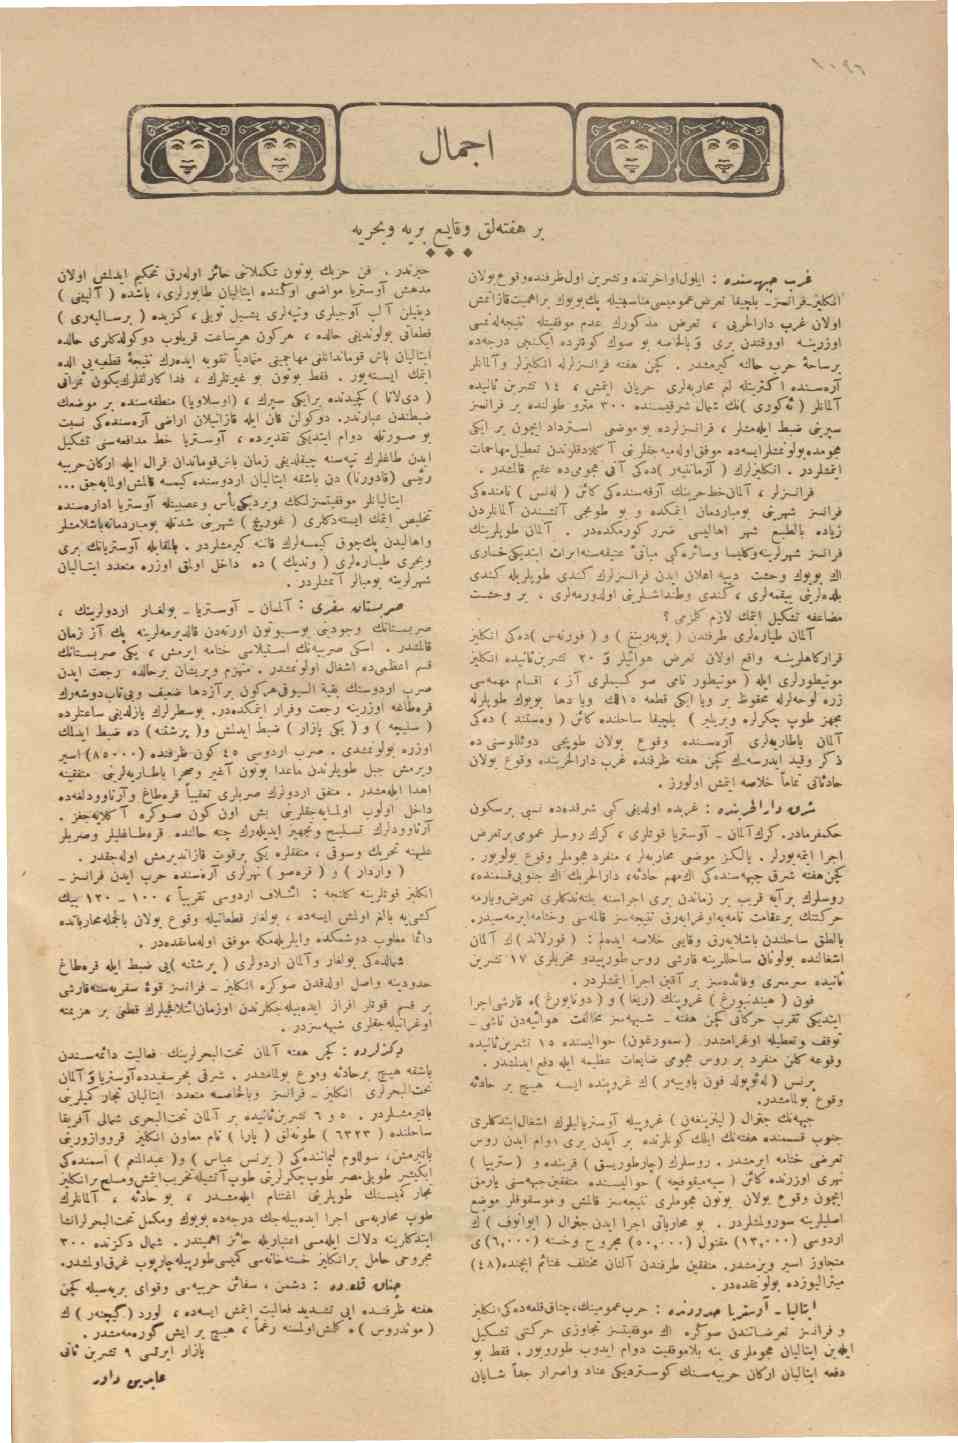 اجمال
بر هفته‌لق وقایع بریه وبحریه
غرب جبهه‌سنده : ایلول‌اواخرنده وتشرین اول‌ظرفنده‌وقوع‌بولان
انکلیز-فرانسز- بلچیقا تعرض‌عمومیسی‌مناسبتیله پك‌بویوك براهمیت‌قازانمش
اولان غرب دارالحربی ، تعرض مذکورك عدم موفقیتله نتیجه‌لنمسی
اوزرینه اووقتدن بری وبالخاصه بو صوك کونلرده ایکنجی درجه‌ده
برساحهٔ حرب حالنه کیرمشدر . کچن هفته فرانسزلرله انکلیزلر وآلمانلر
آره‌سنده اکثریتله لغم محاربه‌لری جریان ایتمش ، ١٤ تشرین ثانیده
آلمانلر ( نه‌کوری )نك شمال شرقیسنده ٣٠٠ مترو طولنده بر فرانسز
سپرینی ضبط ایله‌مشلر ، فرانسزلرده بو موضعی استرداد ایچون بر ایکی
هجومده‌بولونمشلرایسه‌ده موفق‌اوله‌میه‌جقلرینی آکلادقلرندن تعطیل‌مهاجمات
ایتمشلردر . انکلیزلرك ( آرمانتیه‌ر )ده‌کی آنی هجومی‌ده عقیم قالمشدر .
فرانسزلر ، آلمان‌خط‌حربنك آرقه‌سنده‌کی کائن ( له‌نس ) نامنده‌کی
فرانسز شهرینی بومباردمان ایتمکده و بو طوپچی آتشندن آلمانلردن
زیاده بالطبع شهر اهالیسی ضرر کورمکده‌در . آلمان طوپلرینك
فرانسز شهرلرینه‌وکلیسا وسائره‌کبی مبانیٔ عتیقه‌سنه‌ایراث ایتدیکی‌خساری
اك بویوك وحشت دییه اعلان ایدن فرانسزلرك کندی طوپلریله کندی
بلده‌لرینی ییقمه‌لری ، کندی وطنداشلرینی اولدورمه‌لری ، بر وحشت
مضاعفه تشکیل ایتمك لازم کلزمی ؟
آلمان طیاره‌لری طرفندن ( پوپه‌رینغ ) و ( فورنه‌س )ده‌کی انکلیز
قرارکاهلرینه واقع اولان تعرض هوائیلر و ٢٠ تشرین‌ثانیده انکلیز
مونیطورلری ایله ( مونیطور نامی صو کسیملری آز ، اقسام مهمه‌سی
زره لوحه‌لرله محفوظ بر ویا ایکی قطعه ١٥لك ویا دها بویوك طوپلرله
مجهز طوپ چکرلره ویریلیر ) بلچیقا ساحلنده کائن ( وه‌ستند ) ده‌کی
آلمان باطاریه‌لری آره‌سنده وقوع بولان طوپچی دوئللوسنی ده
ذکر وقید ایدرسه‌ك کچن هفته ظرفنده غرب دارالحربنده وقوع بولان
حادثاتی تماماً خلاصه ایتمش اولورز .
شرق دارالحربنده : غربده اولدیغی کبی شرقده‌ده نسبی برسکون
حکمفرمادر. کرك‌آلمان - آوستریا قوتلری ، کرك روسلر عمومی‌برتعرض
اجرا ایتمه‌یورلر . یالکز موضعی محاربه‌لر ، منفرد هجوملر وقوع بولویور .
کچن‌هفته شرق جبهه‌سنده‌کی اك‌مهم حادثه، دارالحربك اك جنوبی‌قسمنده،
روسلرك برآیه قریب بر زماندن بری اجراسنه یلتندکلری تعرض‌ویارمه
حرکتنك برعقامت تامه‌یه‌اوغرایه‌رق نتیجه‌سز قالمه‌سی وختامه‌ایرمه‌سیدر.
بالطق ساحلندن باشلایه‌رق وقایعی خلاصه ایده‌لم : ( قورلاند )ك آلمان
اشغالنده بولونان ساحللرینه قارشی روس طورپیدو مخربلری ١٧ تشرین
ثانیده سرسری وفائده‌سز بر آقین اجرا ایتمشلردر .
فون ( هیندنبورغ ) غروپنك (ریغا) و ( دونابورغ )ه قارشی‌اجرا
ایتدیکی تقرب حرکاتی کچن هفته - شبهه‌سز مخالفت هوائیه‌دن ناشی -
توقف وتعطیله اوغرامشدر. (سمورغون) حوالیسنده ١٥ تشرین‌ثانیده
وقوعه کلن منفرد بر روس هجومی ضایعات عظیمه ایله دفع ایدلمشدر .
پرنس ( له‌ئوپولد فون باویه‌ر )ك غروپنده ایسه هیچ بر حادثه
وقوع بولمامشدر.
جبهه‌نك جنرال ( لینزینغه‌ن ) غروپیله آوستریالیلرك اشغال‌ایتدکلری
جنوب قسمنده هفته‌نك ایلك کونلرنده بر آیدن بری دوام ایدن روس
تعرضی ختامه ایرمشدر . روسلرك (چارطوریسق ) قربنده و (ستریپا )
نهری اوزرنده کائن ( سیه‌میقوفچه ) حوالیسنده متفقین‌جبهه‌سنی یارمق
ایچون وقوع بولان بوتون هجوملری نتیجه‌سز قالمش وموسقوفلر موضع
اصلیلرینه سورولمشلردر . بو محارباتی اجرا ایدن جنرال ( ایوانوف )ك
اردوسی (١٣,٠٠٠) مقتول (٥٠,٠٠٠) مجروح وخسته (٦,٠٠٠)ی
متجاوز اسیر ویرمشدر. متفقین طرفندن آلنان مختلف غنائم ایچنده (٤٨)
میترالیوزده بولونمقده‌در .
ایتالیا - آوستریا حدودنده : حرب‌عمومینك، چناق‌قلعه‌ده‌کی‌انکلیز
و فرانسز تعرضاتندن صوکره اك موفقیتسز تجاوزی حرکتنی تشکیل
ایله‌ین ایتالیان هجوملری ینه بلاموفقیت دوام ایدوب طورویور. فقط بو
دفعه ایتالیان ارکان حربیه‌سنك کوستردیکی عناد واصرار جداً شایان
حیرتدر . فن حربك بوتون تکملاتنی حائز اوله‌رق تحکیم ایدلمش اولان
مدهش آوستریا مواضعی اوکنده ایتالیان طابورلری، باشده ( آلپینی )
دینیلن آلپ آوجیلری وتپه‌لری یشیل تویلی ، کزیده ( برسالیه‌ری )
قطعاتی بولوندیغی حالده ، هرکون هرساعت قریلوب دوکولدکلری حالده
ایتالیان باش قوماندانلغی مهاجمینی متمادیاً تقویه ایده‌رك نتیجهٔ قطعیه‌یی الده
ایتمك ایسته‌یور. فقط بوتون بو غیرتلرك ، فداکارلقلرك‌یکون ثمراتی
( دی‌لانا ) کچیدنده برایکی سپرك ، (اوسلاویا) منطقه‌سنده بر موضعك
ضبطندن عبارتدر. دوکولن قان ایله قازانیلان اراضی آره‌سنده‌کی نسبت
بو صورتله دوام ایتدیکی تقدیرده ، آوستریا خط مدافعه‌سنی تشکیل
ایدن طاغلرك تپه‌سنه چیقلدیغی زمان باش‌قوماندان قرال ایله ارکان‌حربیه
رئیسی (قادورنا) دن باشقه ایتالیان اردوسنده کیمسه قالمش‌اولمایه‌جق ...
ایتالیانلر موفقیتسزلکك ویردیکی‌یأس وعصبیتله آوستریا اداره‌سنده
تخلیص ایتمك ایسته‌دکلری ( غوریچ ) شهرینی شدتله بومباردمانه‌باشلامشلر
واهالیدن پك‌چوق کیمسه‌لرك قاننه کیرمشلردر. بالمقابله آوستریانك بری
وبحری طیاره‌لری ( وندیك ) ده داخل اولمق اوزره متعدد ایتالیان
شهرلرینه بومبالر آتمشلردر .
صربستان سفری : آلمان - آوستریا - بولغار اردولرینك ،
صربستانك وجودینی بوسبوتون اورته‌دن قالدیرمه‌لرینه پك آز زمان
قالمشدر . اسکی صربیه‌نك استیلاسی ختامه ایرمش ، یکی صربستانك
قسم اعظمی‌ده اشغال اولونمشدر . منهزم وپریشان برحالده رجعت ایدن
صرب اردوسنك بقیة السیوفی‌هرکون برآزدها ضعیف وبی‌تاب‌دوشه‌رك
قره‌طاغه اوزرینه رجعت وفرار ایتمکده‌در. بوسطرلرك یازلدیغی ساعتلرده
( سنیچه ) و ( یکی بازار ) ضبط ایدلمش و( پرشتنه ) ده ضبط ایدلمك
اوزره بولونمشدی . صرب اردوسی ٤٥ کون ظرفنده (٨٥٠٠٠) اسیر
ویرمش جبل طوپلرندن ماعدا بوتون آغیر وصحرا باطاریه‌لرینی متفقینه
اهدا ایله‌مشدر. متفق اردولرك صربلری تعقیباً قره‌طاغ وآرناوودلغه‌ده
داخل اولوب اولمایه‌جقلرینی بش اون کون صوکره آکلایه‌جغز .
آرناوودلرك تسلیح وتجهیز ایدیله‌رك چته حالنده قره‌طاغلیلر وصربلر
علیهنه تحریك وسوقی ، متفقلره یکی برقوت قازاندیرمش اوله‌جقدر .
( واردار ) و ( قره‌صو ) نهرلری آره‌سنده حرب ایدن فرانسز -
انکلیز قوتلرینه کلنجه : ائتلاف اردوسی تقریباً ، ١٠٠ - ١٢٠ بیك
کشی‌یه بالغ اولمش ایسه‌ده ، بولغار قطعاتیله وقوع بولان بالجمله‌محارباتده
دائما مغلوب دوشمکده وایلریله‌مکه موفق اوله‌مامقده‌در .
شمالده‌کی بولغار وآلمان اردولری ( پرشتنه )یی ضبط ایله قره‌طاغ
حدودینه واصل اولدقدن صوکره انکلیز - فرانسز قوهٔ سفریه‌سنه‌قارشی
بر قسم قوتلر افراز ایده‌بیله‌جکلرندن اوزمان‌ائتلافجیلرك قطعی بر هزیمته
اوغرانیله‌جقلری شبهه‌سزدر .
دکزلرده : کچن هفته آلمان تحت‌البحرلرینك فعالیت دائمه‌سندن
باشقه هیچ برحادثه وقوع بولمامشدر. شرقی بحرسفیدده‌آوستریا وآلمان
تحت‌البحرلری انکلیز - فرانسز وبالخاصه متعدد ایتالیان تجار کمیلرینی
باتیرمشلردر . ٥ و ٦ تشرین‌ثانیده بر آلمان تحت‌البحری شمالی آفریقا
ساحلنده ( ٦٣٢٢ ) طونه‌لق ( تارا ) نام معاون انکلیز قرووازورینی
باتیرمش، سوللوم لیماننده‌کی ( پرنس عباس ) و( عبدالمنعم ) اسمنده‌کی
ایکیشر طوپلی‌مصر طوپ‌چکرلرینی طوپ‌آتشیله‌تخریب‌ایتمش‌ومسلح‌برانکلیز
تجار کمیسنك طوپلرینی اغتنام ایله‌مشدر ، بو حادثه ، آلمانلرك
طوپ محاربه‌سی اجرا ایده‌بیله‌جك درجه‌ده بویوك ومکمل تحت‌البحرلرانشا
ایتدکلرینه دلالت ایله‌مسی اعتباریله حائز اهمیتدر. شمال دکزنده ٣٠٠
مجروحی حامل برانکلیز خسته‌خانه‌سی کمیسی‌طورپیله‌چارپوب غرق‌اولمشدر.
چناق قلعه‌ده : دشمن ، سفائن حربیه‌سی وقوای بریه‌سیله کچن
هفته ظرفنده ایی تشدید فعالیت ایتمش ایسه‌ده ، لورد (کیچنه‌ر) ك
( موندروس )ه کلمش‌اولمسنه رغماً ، هیچ بر ایش کوره‌مه‌مشدر .
بازار ایرتسی ٩ تشرین ثانی
عابدین داور